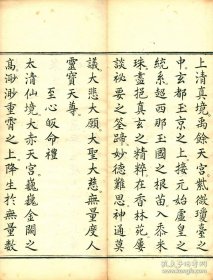 上清真境禹餘天宮散微瓊臺之
中玄都玉京之上接元始盧皇之
統系超西那玉國之根苗入黍米
珠盡挹真玄之精粹在香林苑屢
談秘要之筌蹄妙德難思神通莫
議大悲大願大聖大慈無量度人
靈寶天尊
至心皈命禮
太清仙境大赤天宮巍巍金闕之
高渺渺重霄之上降生於無量數